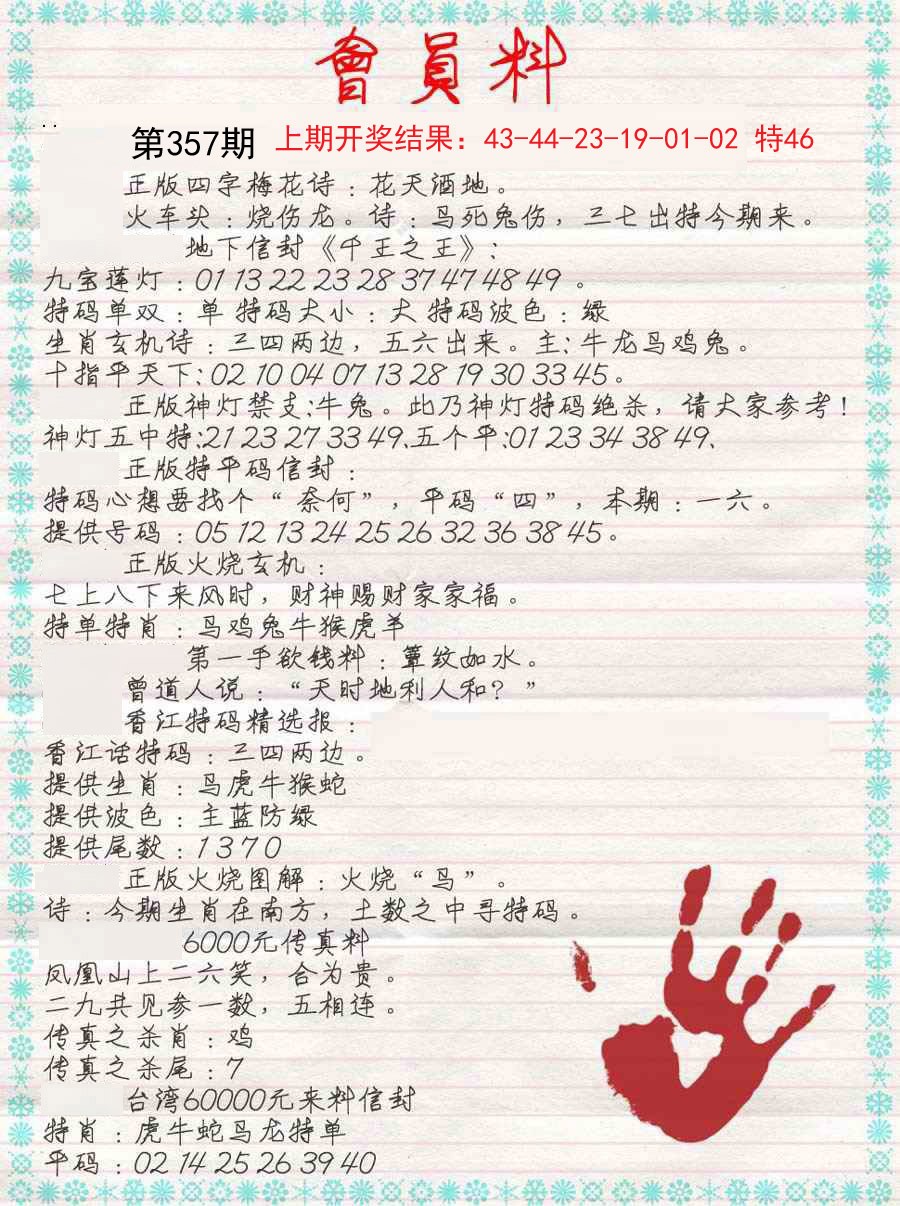 會員料
第357期 上期开奖结果：43-44-23-19-01-02 特46
正版四字梅花诗：花天酒地。
火车头：烧伤龙。诗：鸟死兔伤，三七出特今期来。
地下信封《千王之王》：
九宝莲灯：01 13 22 23 28 37 47 48 49 。
特码单双：单 特码大小：大 特码波色：绿
生肖玄机诗：三四两边，五六出来。主：牛龙鸟鸡兔。
十指平天下：02 10 04 07 13 28 19 30 33 45。
正版神灯禁支：牛兔。此乃神灯特码绝杀，请大家参考！
神灯五中特：21 23 27 33 49、五个平：01 23 34 38 49、
正版特平码信封：
特码心想要找个“奈何”，平码“四”，本期：一六。
提供号码：05 12 13 24 25 26 32 36 38 45。
正版火烧玄机：
七上八下来风时，财神赐财家家福。
特单特肖：鸟鸡兔牛猴虎羊
第一手欲钱料：簟纹如水。
曾道人说：“天时地利人和？”
香江特码精选报：
香江话特码：三四两边。
提供生肖：鸟虎牛猴蛇
提供波色：主蓝防绿
提供尾数：1 3 7 0
正版火烧图解：火烧“鸟”。
诗：今期生肖在南方，土数之中寻特码。
6000元传真料
凤凰山上二六笑，合为贵。
二九共见参一数，五相连。
传真之杀肖：鸡
传真之杀尾：7
台湾60000元来料信封
特肖：虎牛蛇鸟龙特单
平码：02 14 25 26 39 40